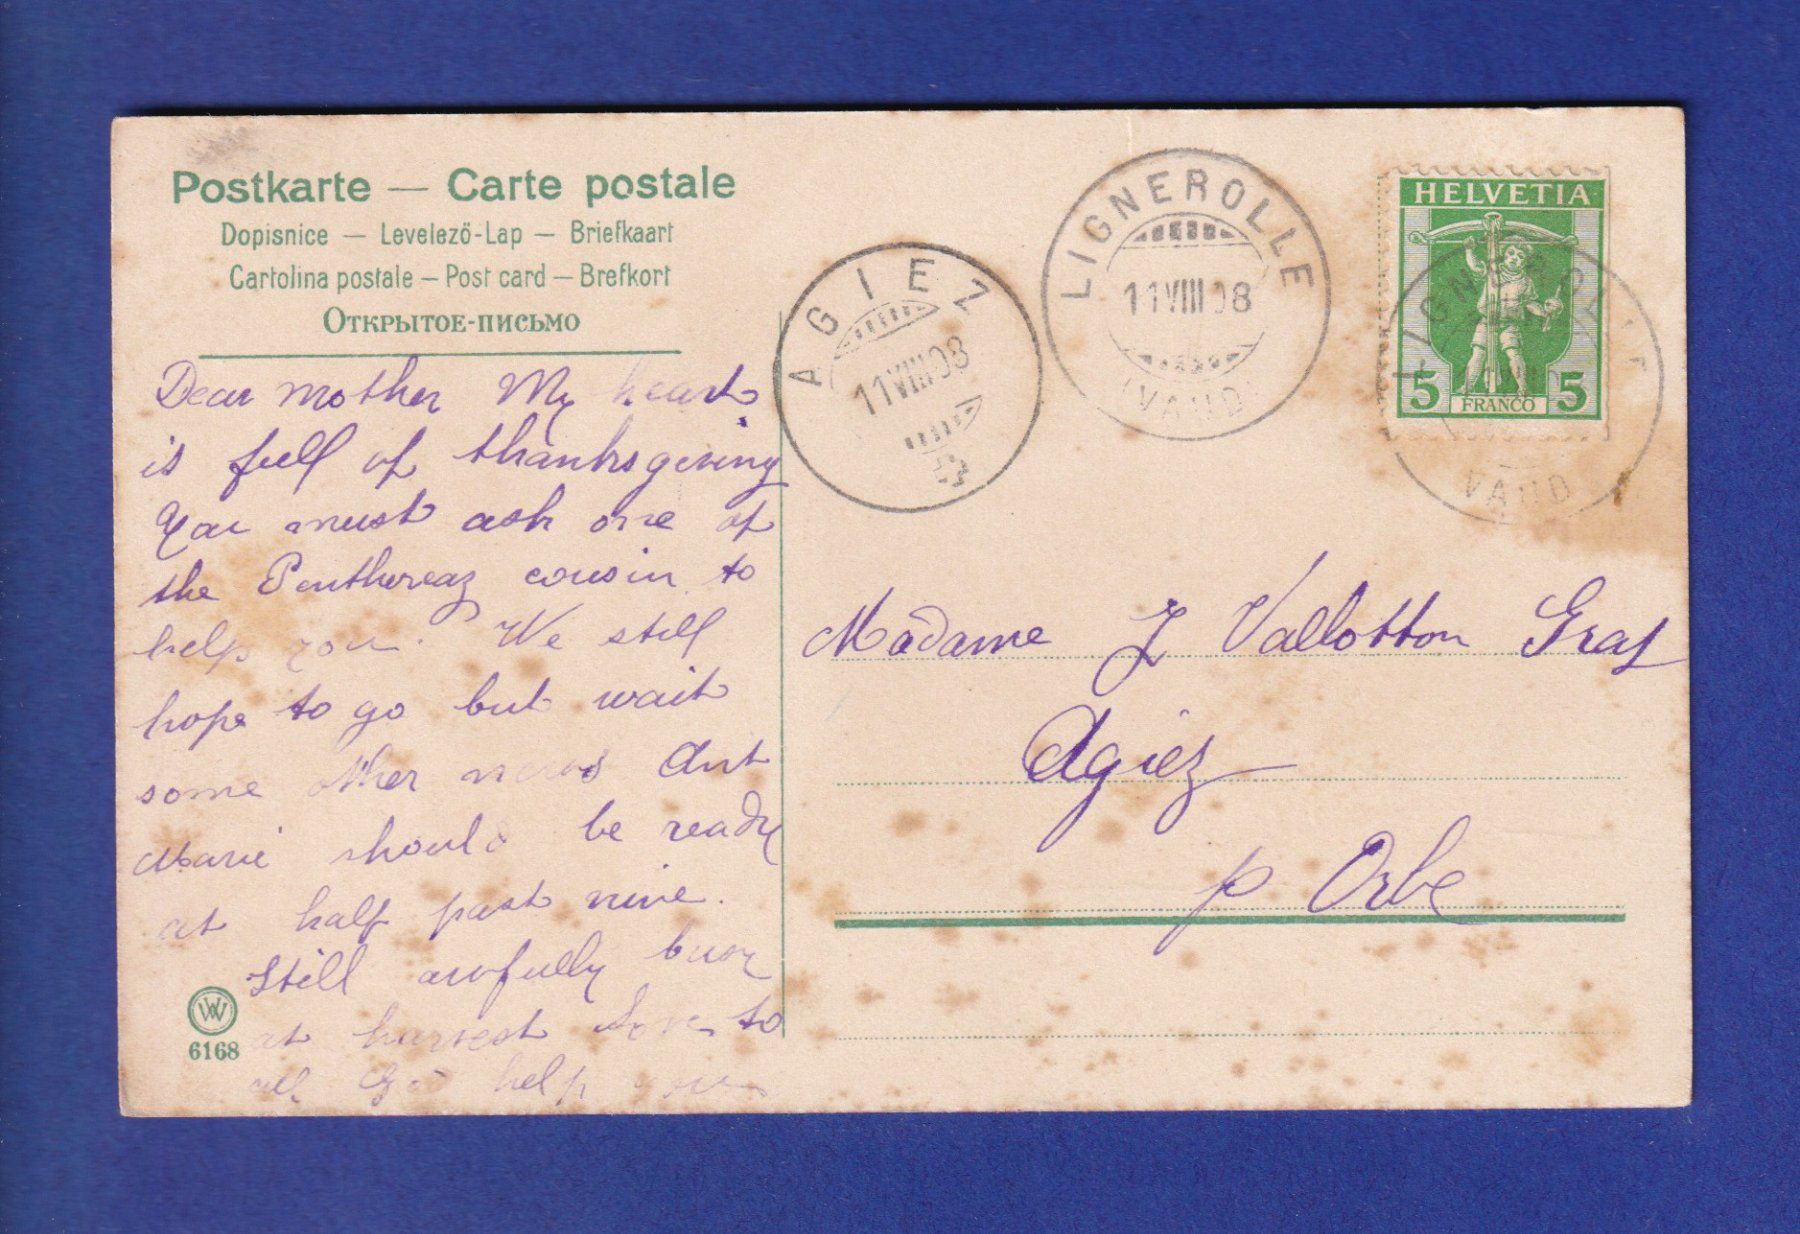 Postkarte — Carte postale
Dopisnice — Levelező-Lap — Briefkaart
Cartolina postale — Post card — Brefkort
Открытое-письмо
Dear mother My heart
is full of thanksgiving
You must ask one of
the Penthereaz cousin to
help you. We still
hope to go but wait
some other news Ant
Marie should be ready
at half past nine.
Still awfully busy
at harvest Love to
all God help you
W
6168
AGIEZ
11 VIII 08
LIGNEROLLE
11 VIII 08
(VAUD)
HELVETIA
5 FRANCO 5
LIGNEROLLE
VAUD
Madame J Vallotton Graf
Agiez
p Orbe